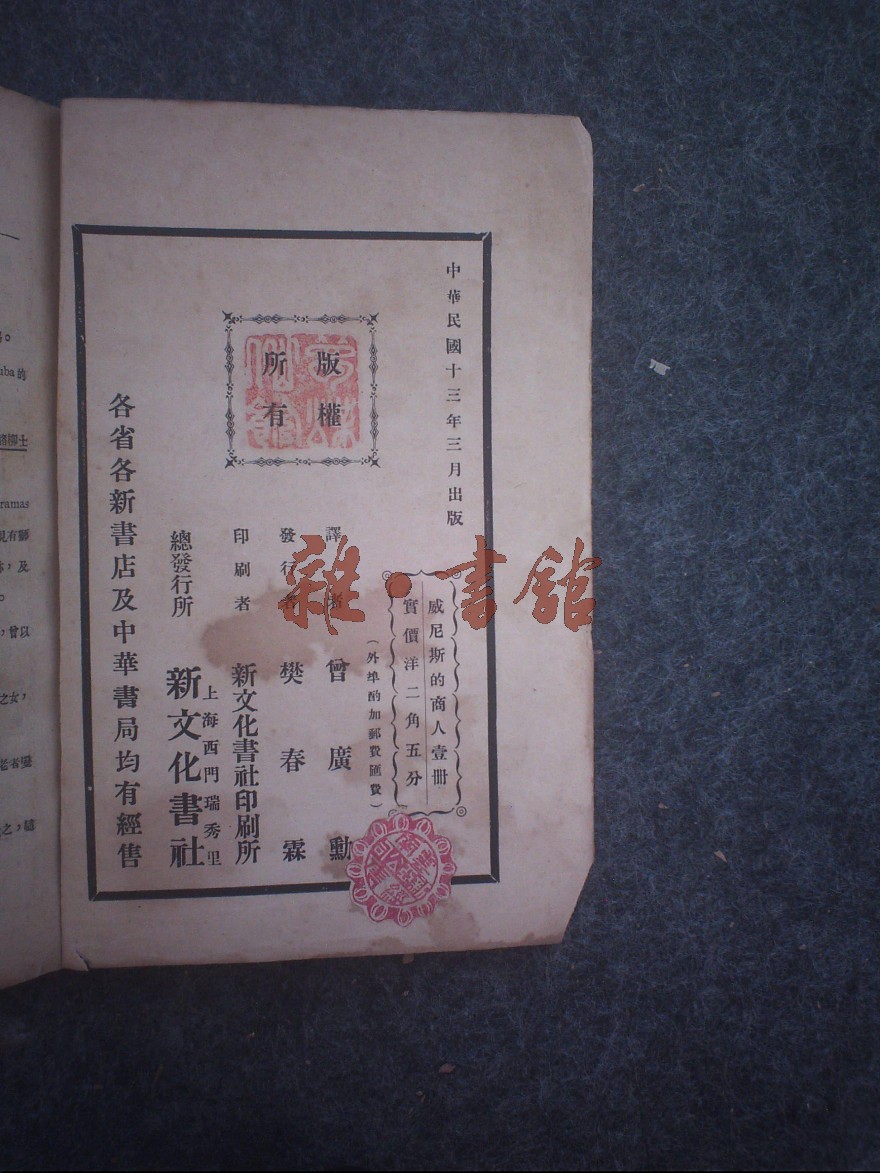 中華民國十三年三月出版
威尼斯的商人壹册
實價洋二角五分
（外埠酌加郵費匯費）
版權
所有
譯者 曾廣勳
發行者 樊春霖
印刷者 新文化書社印刷所
總發行所 上海西門瑞秀里 新文化書社
各省各新書店及中華書局均有經售
雜·書館
uba的
ramas
現有鄒
，及
，曾以
之女，
老者變